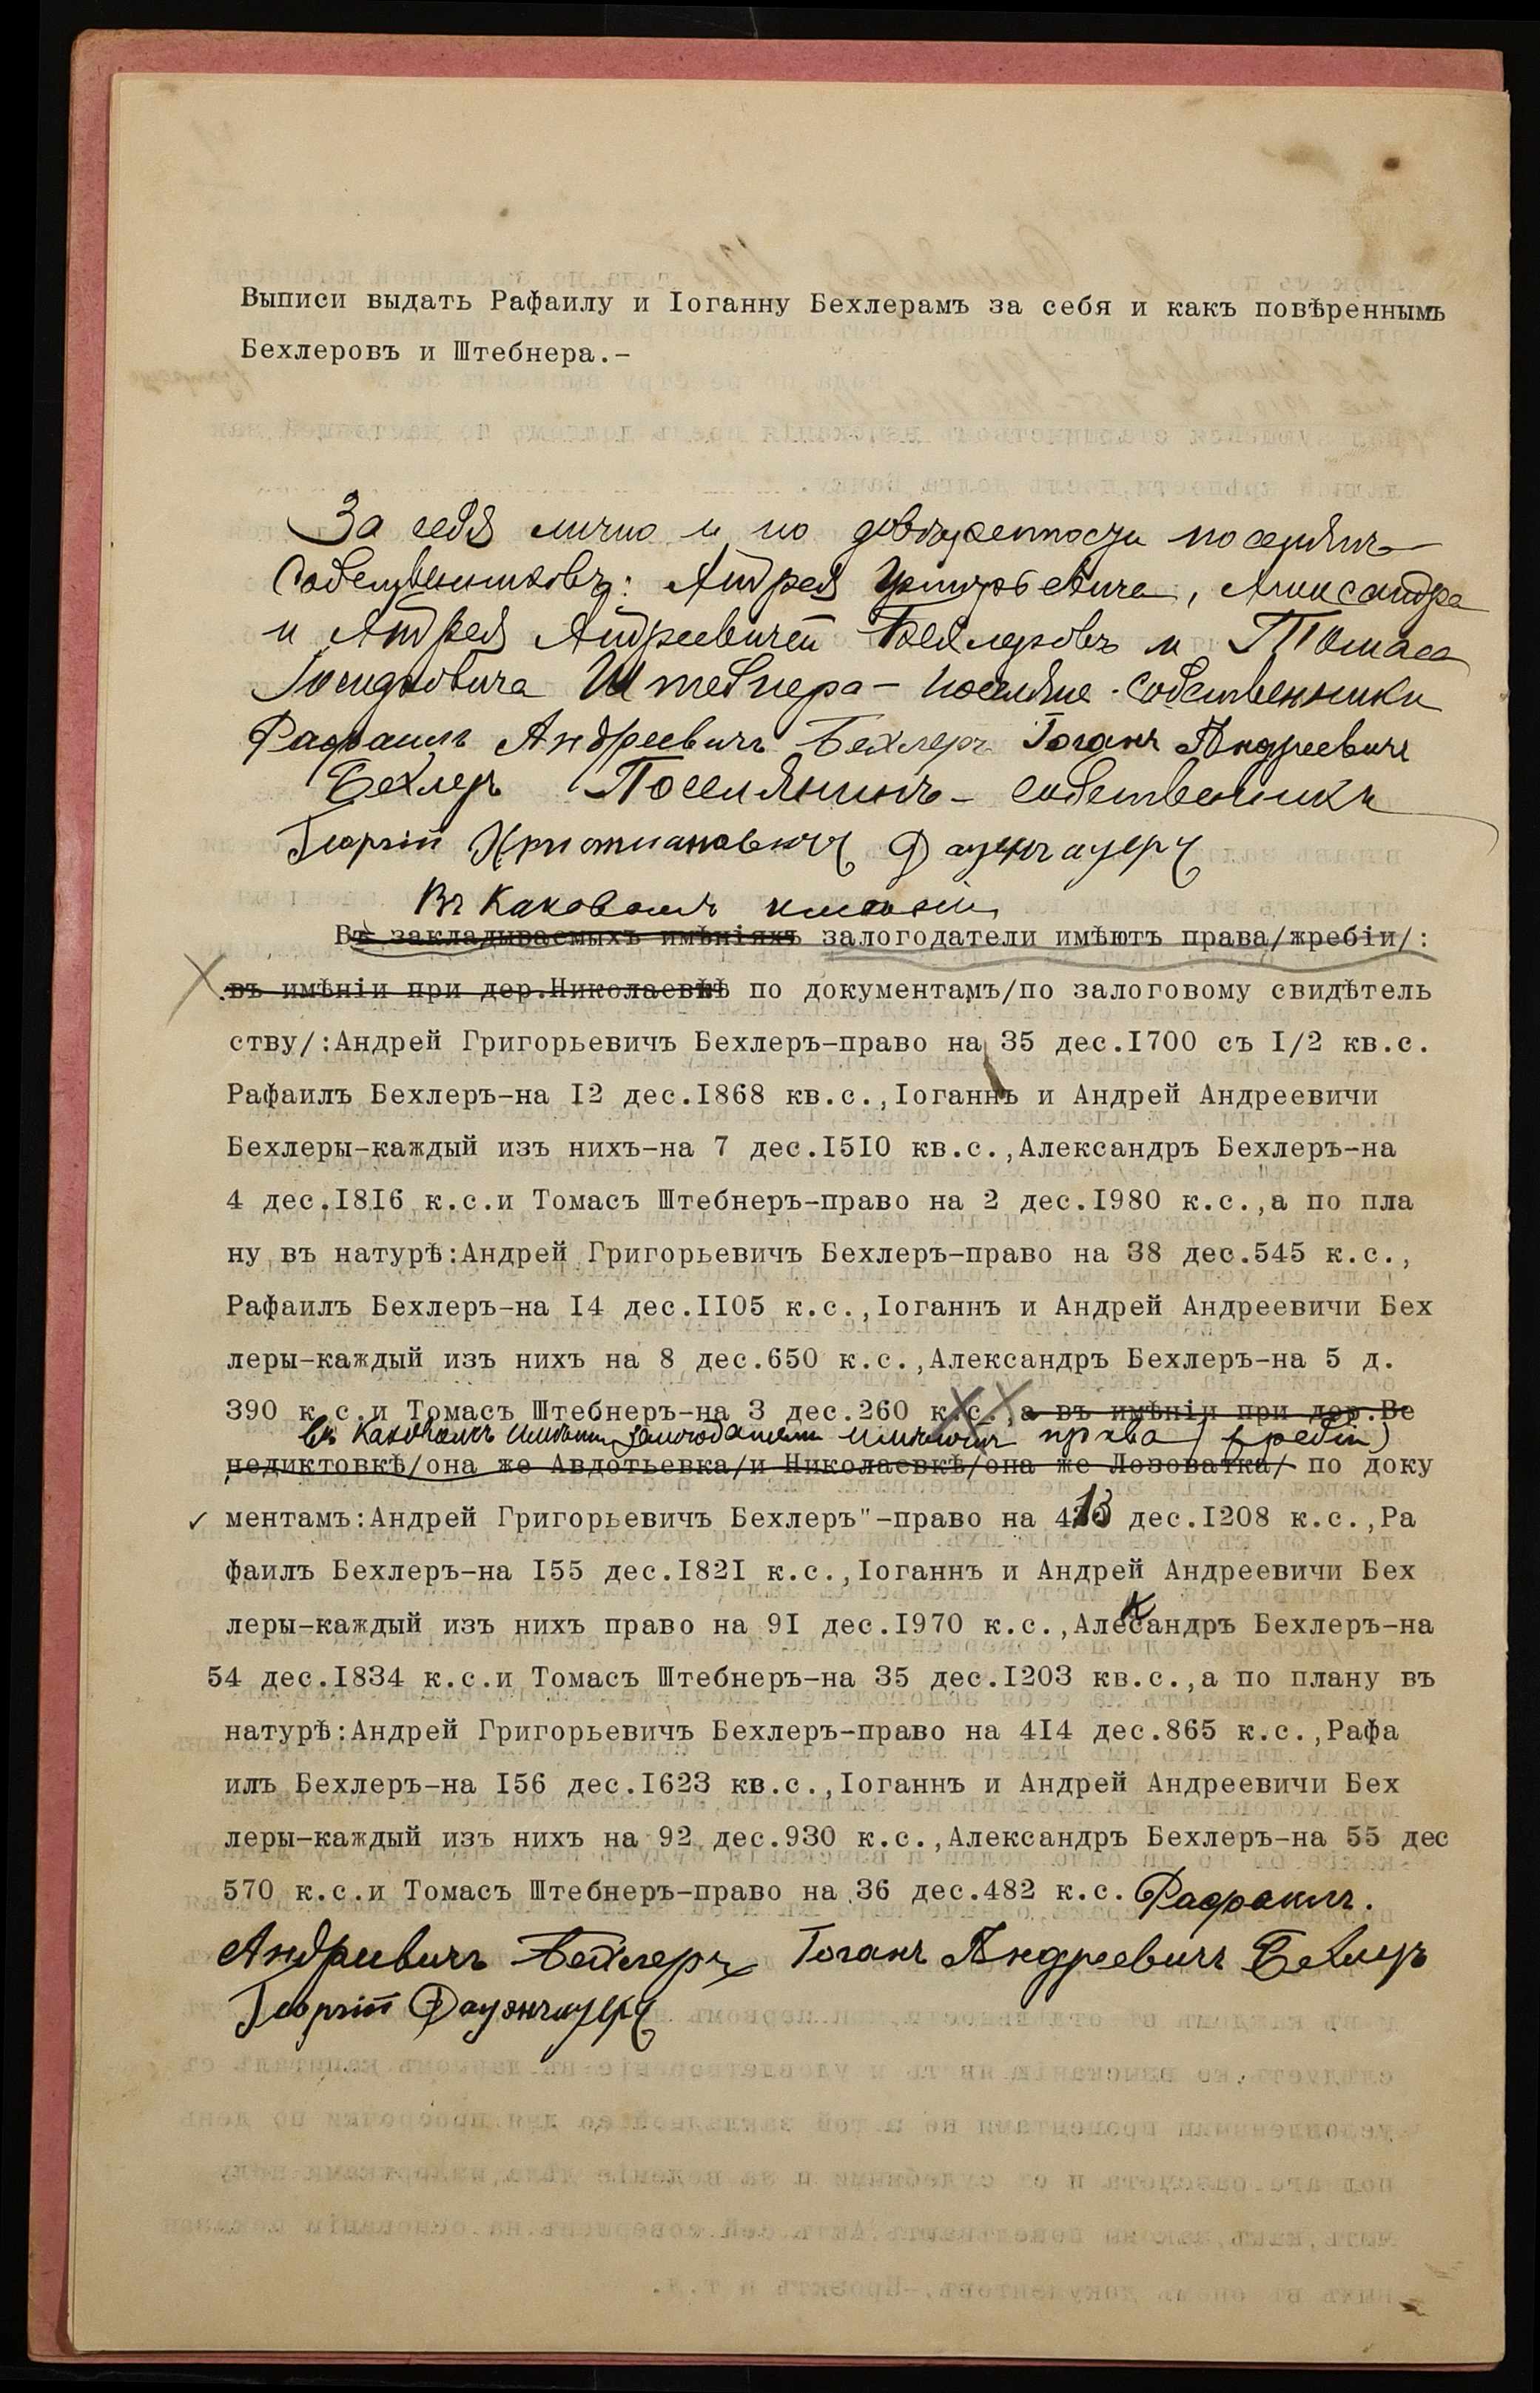 Выписи выдать Рафаилу и Іоганну Бехлерамъ за себя и какъ повѣреннымъ
Бехлеровъ и Штебнера.-
За себя лично и по довѣренности поселянъ
собственниковъ: Андрея Григорьевича, Александра
и Андрея Андреевичей Бехлеровъ и Томаса
Штебнера - поселяне-собственники
Рафаилъ Андреевичъ Бехлеръ Іоганъ Андреевичъ
Бехлеръ Поселянинъ-собственникъ
Георгій Христиановичъ
Въ каковомъ имѣніи
Въ закладываемыхъ имѣніяхъ залогодатели имѣютъ права/жребіи/:
въ имѣніи при дер.Николаевкѣ по документамъ/по залоговому свидѣтель
ству/:Андрей Григорьевичъ Бехлеръ-право на 35 дес.I700 съ I/2 кв.с.
Рафаилъ Бехлеръ-на I2 дес.I868 кв.с.,Іоганнъ и Андрей Андреевичи
Бехлеры-каждый изъ нихъ-на 7 дес.I5I0 кв.с.,Александръ Бехлеръ-на
4 дес.I8I6 к.с.и Томасъ Штебнеръ-право на 2 дес.I980 к.с.,а по пла
ну въ натурѣ:Андрей Григорьевичъ Бехлеръ-право на 38 дес.545 к.с.,
Рафаилъ Бехлеръ-на I4 дес.II05 к.с.,Іоганнъ и Андрей Андреевичи Бех
леры-каждый изъ нихъ на 8 дес.650 к.с.,Александръ Бехлеръ-на 5 д.
390 к.с.и Томасъ Штебнеръ-на 3 дес.260 к.с.,а въ имѣніи при дер.Бе
въ каковомъ имѣніи залогодатели имѣютъ права (жребіи)
недиктовкѣ/она же Авдотьевка/и Николаевкѣ/она же Лозоватка/ по доку
ментамъ:Андрей Григорьевичъ Бехлеръ"-право на 413 дес.I208 к.с.,Ра
фаилъ Бехлеръ-на I55 дес.I82I к.с.,Іоганнъ и Андрей Андреевичи Бех
леры-каждый изъ нихъ право на 9I дес.I970 к.с.,Александръ Бехлеръ-на
54 дес.I834 к.с.и Томасъ Штебнеръ-на 35 дес.I203 кв.с.,а по плану въ
натурѣ:Андрей Григорьевичъ Бехлеръ-право на 4I4 дес.865 к.с.,Рафа
илъ Бехлеръ-на I56 дес.I623 кв.с.,Іоганнъ и Андрей Андреевичи Бех
леры-каждый изъ нихъ на 92 дес.930 к.с.,Александръ Бехлеръ-на 55 дес
570 к.с.и Томасъ Штебнеръ-право на 36 дес.482 к.с. Рафаилъ.
Андреевичъ Бехлеръ Іоганъ Андреевичъ Бехлеръ
Георгій